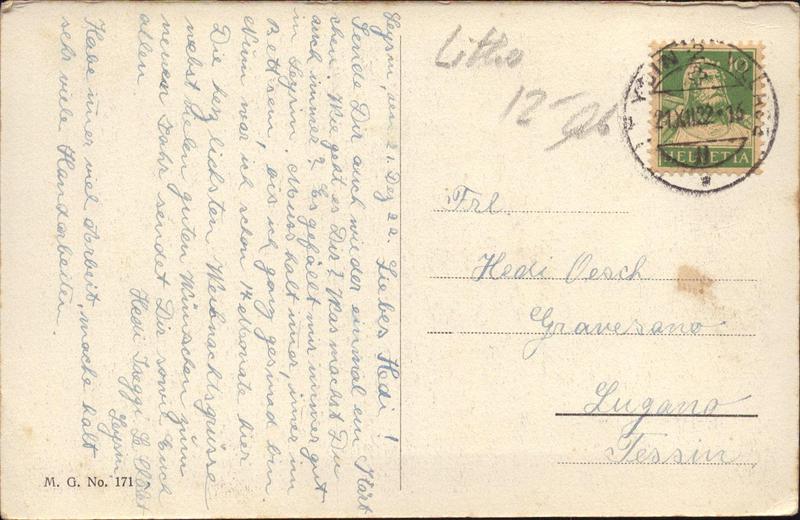 Leysin, den 21. Dez 22. Liebes Hedi!
Sende Dir auch wieder einmal ein Kärt
chen. Wie geht es Dir? Was machst Du
auch immer? Es gefällt mir immer gut
in Leysin. Muss halt immer, immer im
Bett sein, bis ich ganz gesund bin
Nun war ich schon 14 Monate hier
Die herzlichsten Weihnachtsgrüsse
nebst vielen guten Wünschen zum
neuen Jahr sendet Dir sowie Euch
allen.
Hedi
Leysin
Habe immer viel Arbeit, mache halt
sehr viele Handarbeiten.
M. G. No. 171
Litho
12-
HELVETIA
10
21.XII.22.-16
Frl.
Hedi Oesch
Gravesano
Lugano
Tessin